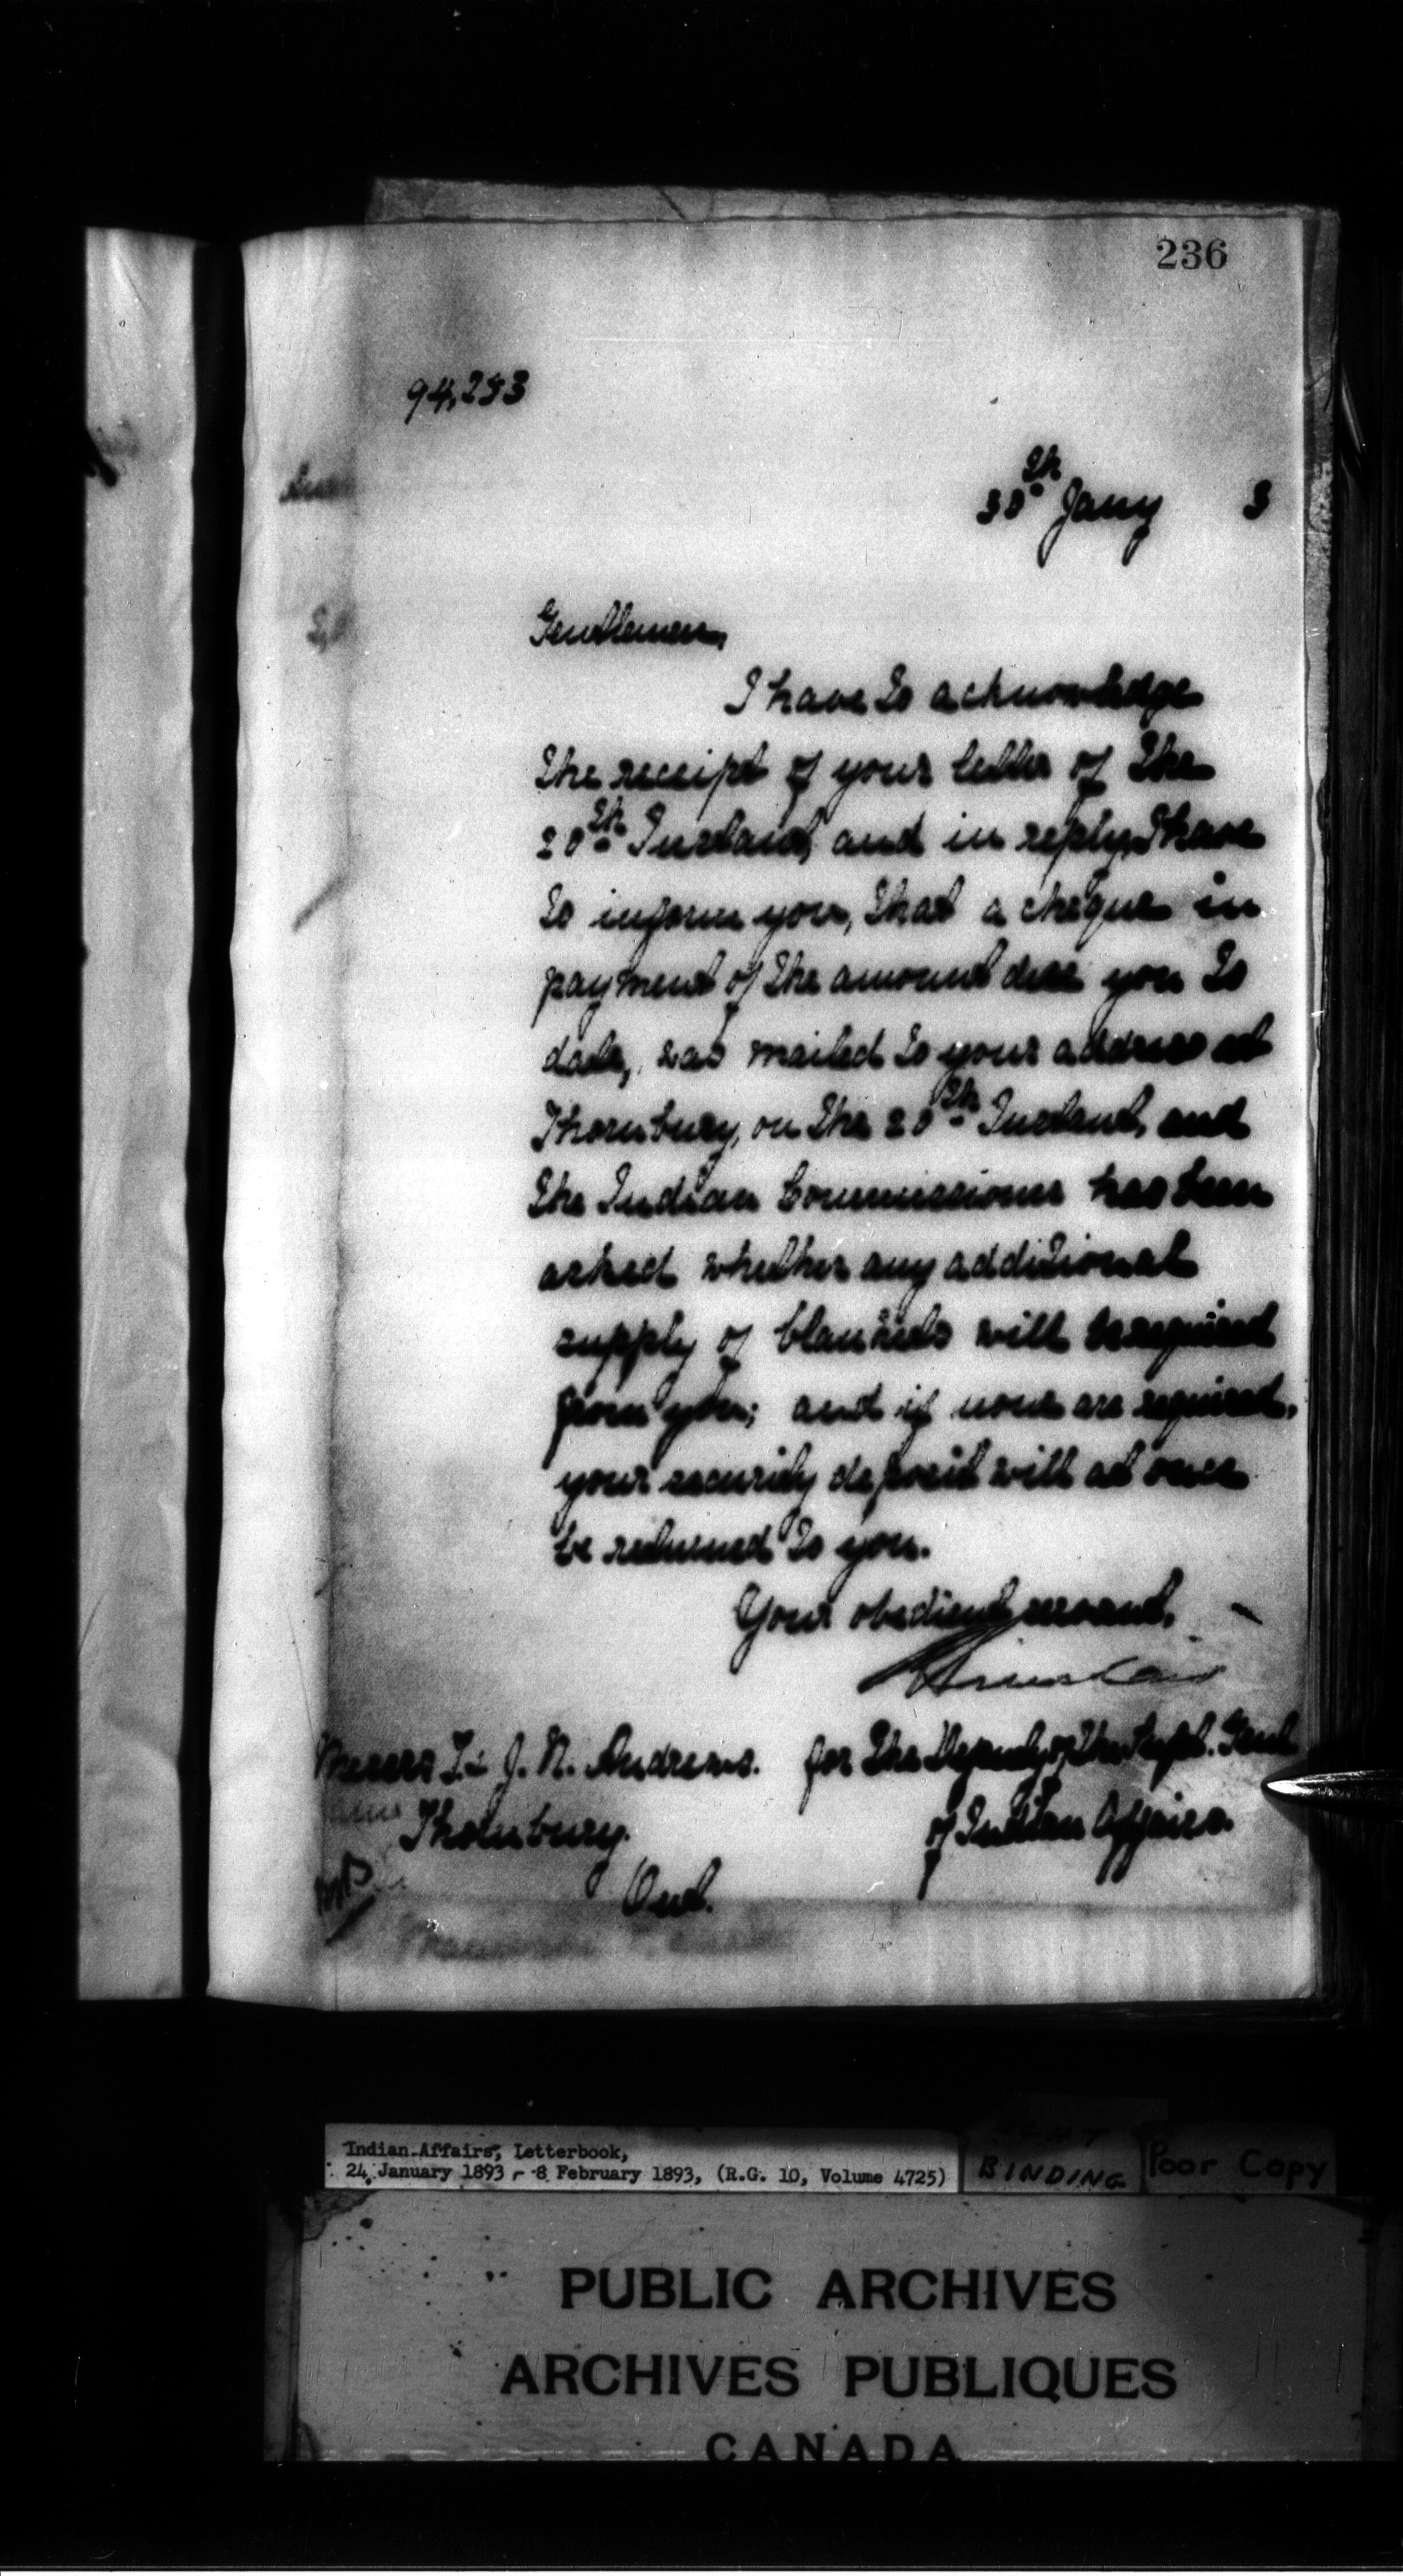 236
94,253
30th Jany 3
Gentlemen,
I have to acknowledge
the receipt of your letter of the
20th Instant, and in reply, I have
to inform you, that a cheque in
payment of the amount due you to
date, was mailed to your address at
Thornbury, on the 20th Instant, and
the Indian Commissioner has been
asked whether any additional
supply of blankets will be required
from you; and if none are required,
your security deposit will at once
be returned to you.
Your obedient servant,
Messrs T. & J. N. Andrews. for the Deputy of the Supt. Genl
Thornbury. of Indian Affairs.
Ont.
Indian Affairs, Letterbook,
24 January 1893 - 8 February 1893, (R.G. 10, Volume 4725)
BINDING
Poor Copy
PUBLIC ARCHIVES
ARCHIVES PUBLIQUES
CANADA